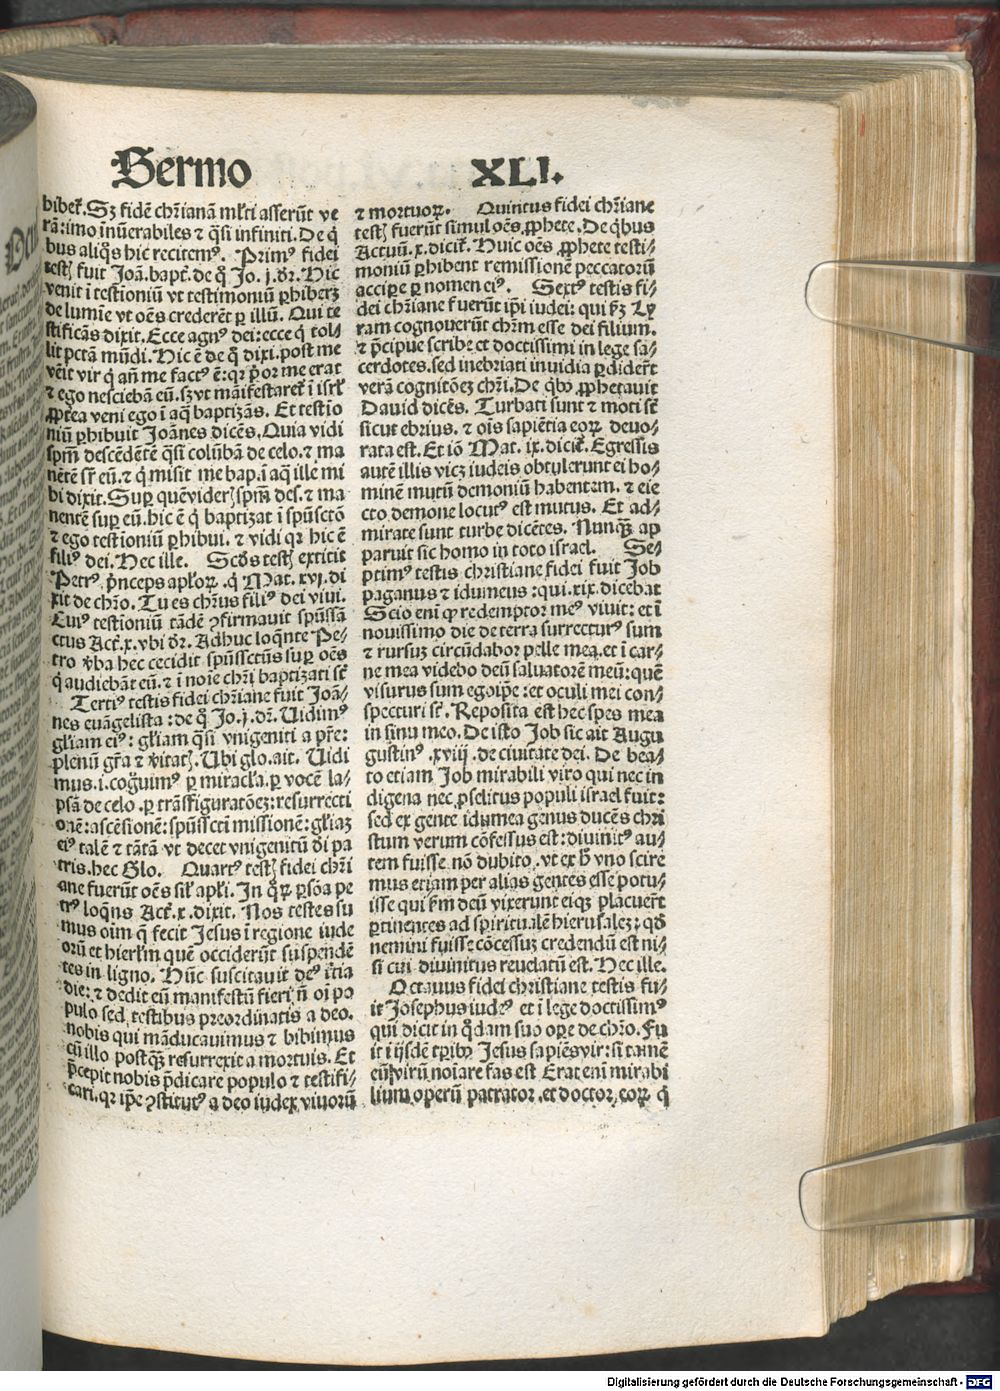 Sermo XLI.
bibet᷑. Sꝫ fidē chr̄ianā ml̓ti asserūt ve
rā: imo īnūerabiles ⁊ q̄si infiniti. De q̄
bus aliq̄s hic recitemꝰ. Primꝰ fidei
testꝭ fuit Joā. bapt̄. de q̊ Jo. j. dr̄. Hic
venit ī testioniū vt testimoniū ꝑhiberꝫ
de lumīe vt oēs crederēt ꝑ illū. Qui te
stificās dixit. Ecce agnꝰ dei: ecce q̇ tol⸗
lit pctā mūdi. Hic ē de q̊ dixi. post me
vēit vir q̇ añ me factꝰ ē: qꝛ p̓or me erat
⁊ ego nesciebā eū. sꝫ vt māifestaret᷑ ī isrl̓
ꝓpt̓ea veni ego ī aq̄ baptizās. Et testio
niū ꝑhibuit Joānes dicēs. Quia vidi
spm̄ descēdētē q̄si colūbā de celo. ⁊ ma
nētē sr̄ eū. ⁊ q̇ misit me bap. ī aq̄ ille mi
bi dixit. Suꝑ quē viderꝭ spm̄ des. ⁊ ma
nentē suꝑ eū. hic ē q̇ baptizat ī spūsctō
⁊ ego testioniū ꝑhibui. ⁊ vidi qꝛ hic ē
filiꝰ dei. Hec ille. Scd̓s testꝭ extitit
Petrꝰ p̓nceps apl̓oꝝ. q̇ Mat. xvj. di
xit de chr̄o. Tu es chr̄us filiꝰ dei vivi.
Cuiꝰ testioniū tādē ꝯfirmavit spūssā
ctus Act̄. x. vbi dr̄. Adhuc loq̄nte Pe⸗
tro v̓ba hec cecidit spūssctūs suꝑ oēs
q̇ audiebāt eū. ⁊ ī noīe chr̄i baptizati st̄
Tertiꝰ testis fidei chr̄iane fuit Joā⸗
nes euāgelista: de q̊ Jo. j. dr̄. Uidimꝰ
gl̓iam eiꝰ: gl̓iam q̄si vnigeniti a pr̄e:
plenū gr̄a ⁊ v̓itatꝭ. Ubi glo. ait. Uidi
mus. i. cog̊uimꝰ ꝑ miracl̓a. ꝑ vocē la⸗
psā de celo. ꝑ trāsfiguratōeꝫ: resurrecti
onē: ascēsionē: spūsscti missionē: gl̓iaꝫ
eiꝰ talē ⁊ tātā vt decet vnigenitū d̓i pa
tris. hec Glo. Quartꝰ testꝭ fidei chr̄i
ane fuerūt oēs sil̓ apl̓i. In q̊ꝝ ꝑsōa pe
trꝰ loq̄ns Act̄. x. dixit. Nos testes su
mus oim̄ q̄ fecit Jesus ī regione iude
orū et hierl̓m quē occiderūt suspendē
tes in ligno. Hūc suscitavit deꝰ t̓tia
die: ⁊ dedit eū manifestū fieri. ñ oī po
pulo sed testibus preordinatis a deo.
nobis qui māducauimus ⁊ bibimus
cū illo postꝙ̄ resurrexit a mortuis. Et
p̄cepit nobis p̄dicare populo ⁊ testifi⸗
cari. qꝛ ip̄e ꝯstitutꝰ a deo iudex viuorū
⁊ mortuoꝝ. Quintus fidei chr̄iane
testꝭ fuerūt simul oēs ꝓphete. De q̇bus
Actuū. x. dicit᷑. Huic oēs ꝓphete testi⸗
moniū ꝑhibent remissionē peccatorū
accipe ꝑ nomen eiꝰ. Sextꝰ testis fi⸗
dei chr̄iane fuerūt ip̄i iudei: qui ẜꝫ Ly
ram cognouerūt chr̄m esse dei filium.
⁊ p̄cipue scribe et doctissimi in lege sa⸗
cerdotes. sed inebriati inuidia ꝑdiderūt
verā cognitōeꝫ chr̄i. De q̇bꝰ ꝓphetauit
Dauid dicēs. Turbati sunt ⁊ moti st̄
sicut ebrius. ⁊ oīs sapiētia eoꝝ deuo⸗
rata est. Et iō Mat. ix. dicit᷑. Egressis
autē illis vicꝫ iudeis obtulerunt ei ho⸗
minē mutū demoniū habentem. ⁊ eie
cto demone locutꝰ est mutus. Et ad⸗
mirate sunt turbe dicētes. Nunꝙ̄ ap
paruit sic homo in toto israel. Se⸗
ptimꝰ testis christiane fidei fuit Job
paganus ⁊ idumeus: qui. xix. dicebat
Scio enī ꝙ redemptor meꝰ viuit: et ī
nouissimo die de terra surrecturꝰ sum
⁊ rursuꝫ circūdabor pelle mea. et ī car⸗
ne mea videbo deū saluatorē meū: quē
visurus sum ego ip̄e: et oculi mei con⸗
specturi st̄. Reposita est hec spes mea
in sinu meo. De isto Job sic ait Augu
gustinꝰ. xviij. de ciuitate dei. De bea⸗
to etiam Job mirabili viro qui nec in
digena nec ꝓselitus populi israel fuit:
sed ex gente idumea genus ducēs chri
stum verum cōfessus est: diuinitꝰ au⸗
tem fuisse nō dubito. vt ex h̓ vno scire
mus etiam per alias gentes esse potu⸗
isse qui ẜm deū vixerunt eiqꝫ placuert̄
ꝑtinentes ad spiritualē hierusaleꝫ: qd̓
nemini fuisse cōcessuꝫ credendū est ni⸗
si cui diuinitus reuelatū est. Hec ille.
Octauus fidei christiane testis fu⸗
it Josephus iudeꝰ et ī lege doctissimꝰ
qui dicit in q̊dam suo oꝑe de chr̄o. Fu
it ī ijsdē tꝑibꝰ Jesus sapiēs vir: si tamē
eū virū noīare fas est Erat enī mirabi
lium operū patrator. et doctor eoꝝ q̇
Digitalisierung gefördert durch die Deutsche Forschungsgemeinschaft - DFG